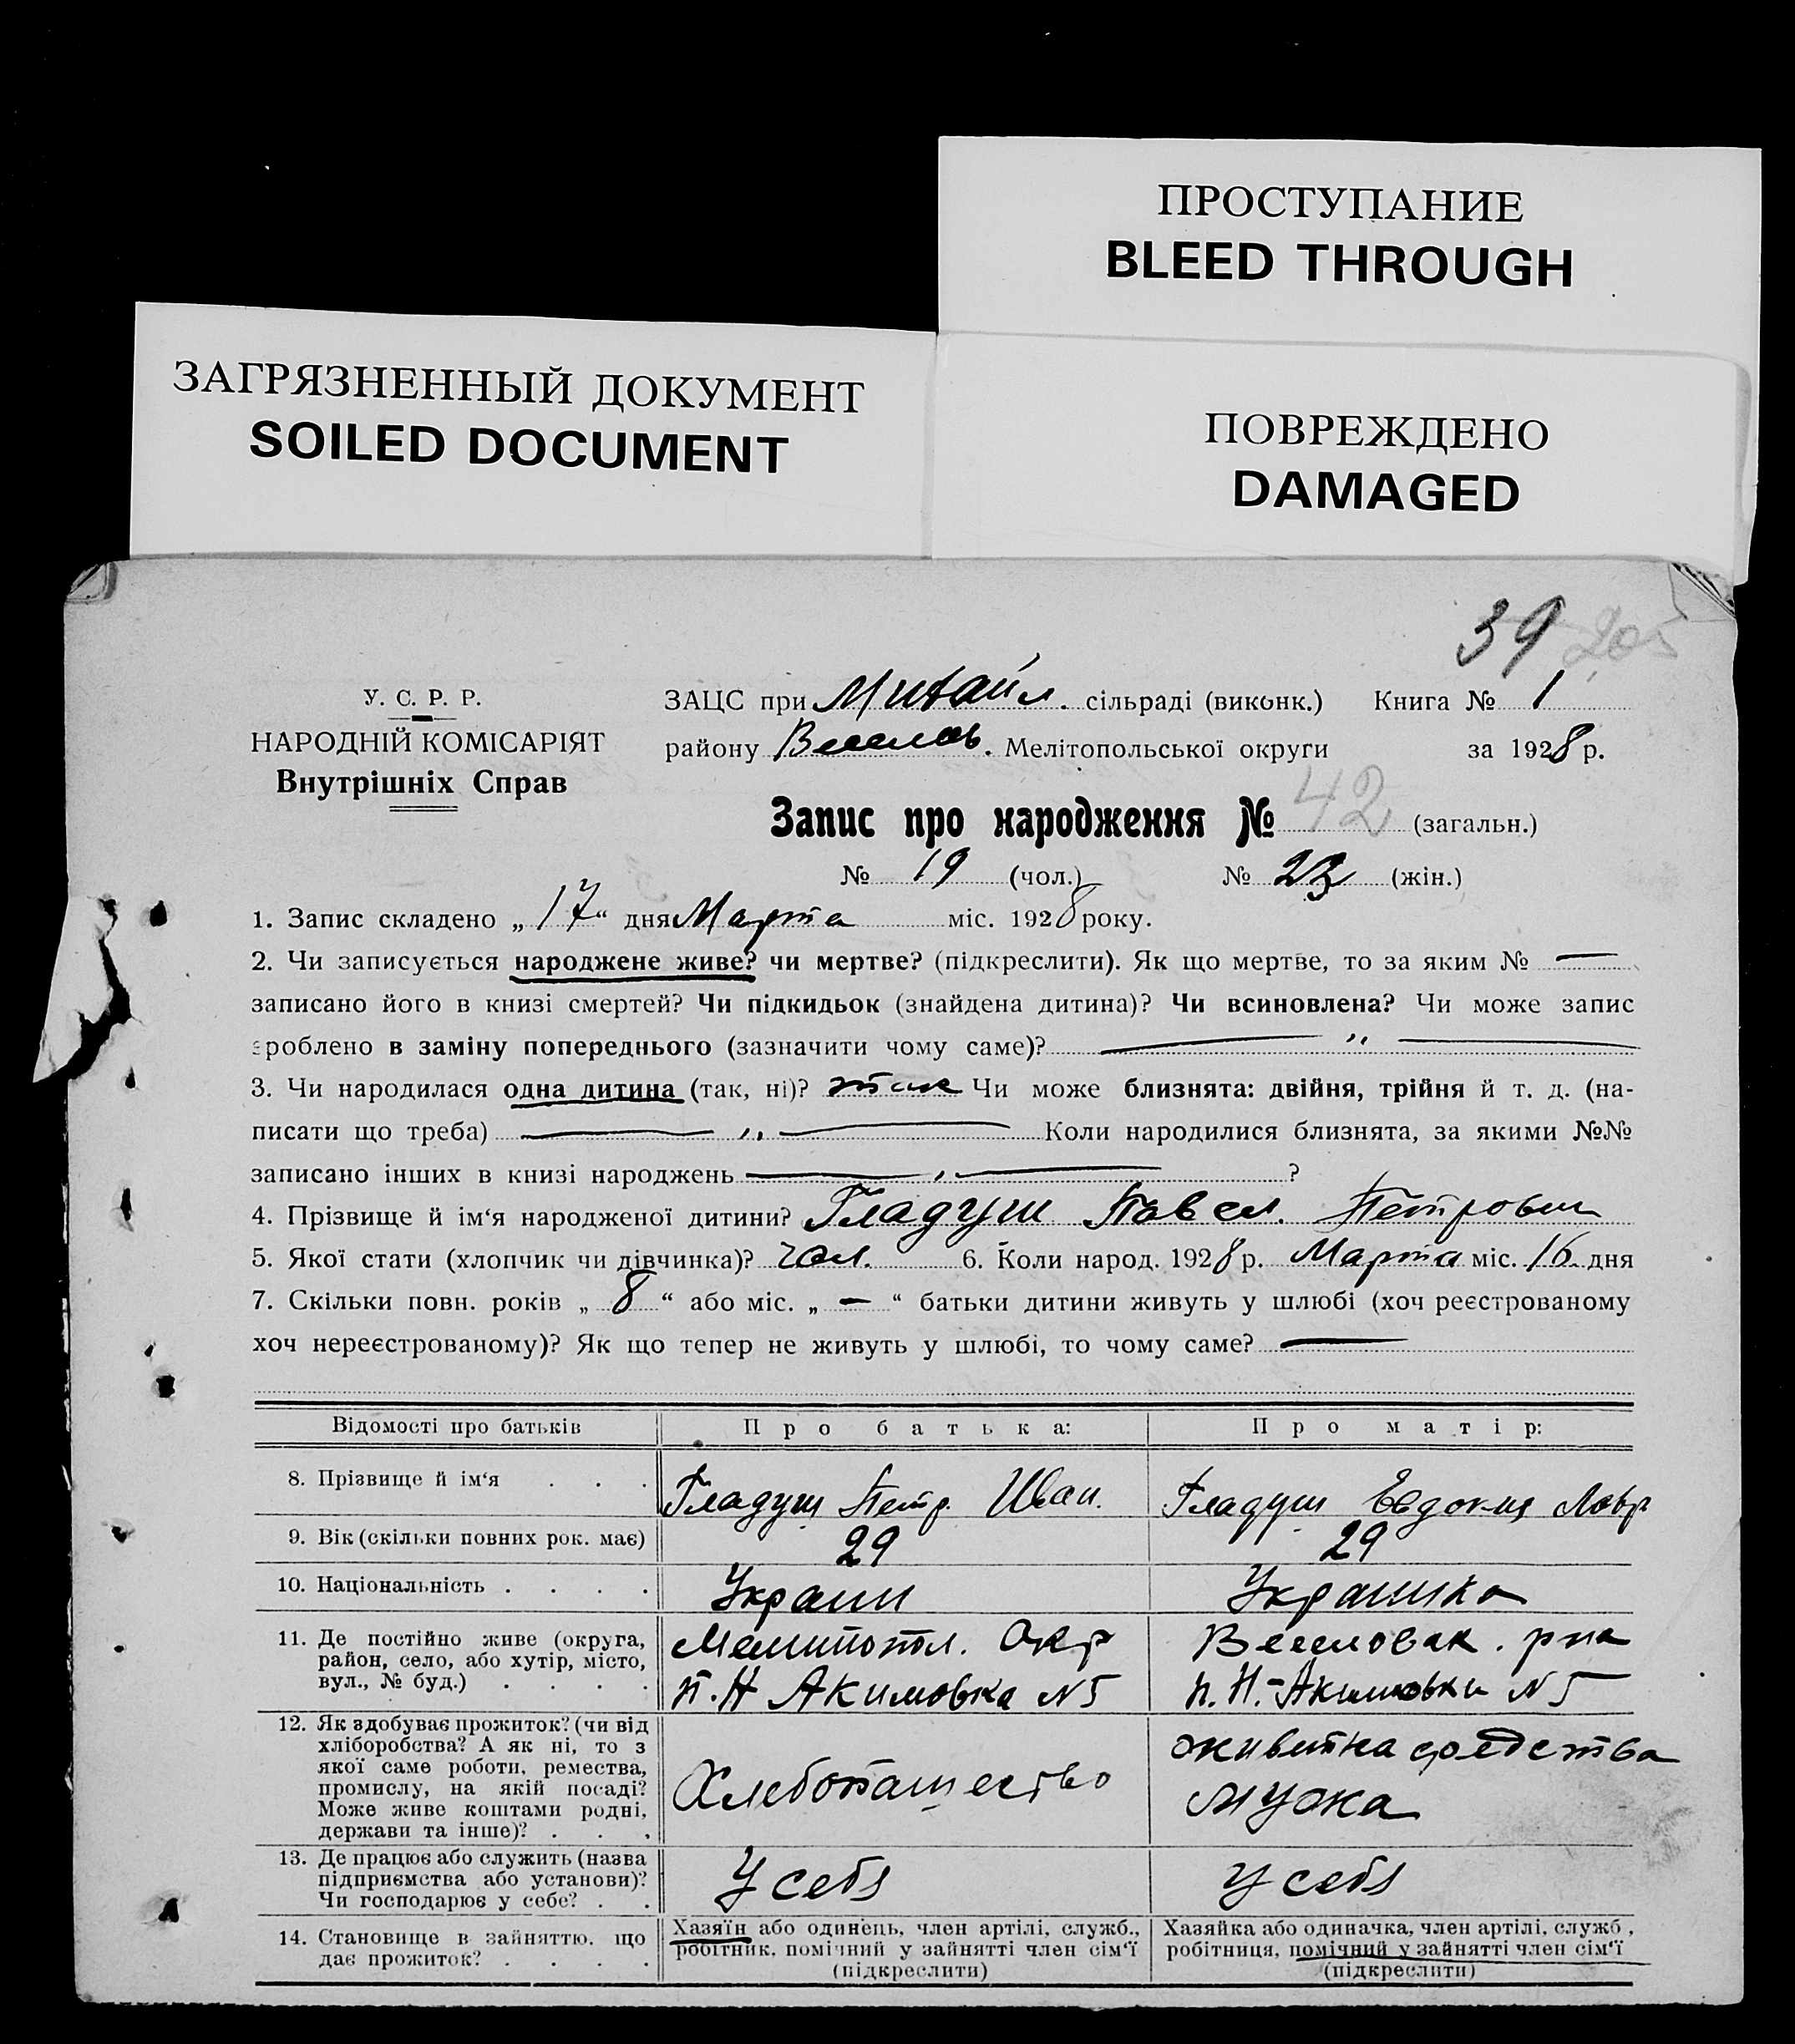 ПРОСТУПАНИЕ
BLEED THROUGH
ЗАГРЯЗНЕННЫЙ ДОКУМЕНТ
SOILED DOCUMENT
ПОВРЕЖДЕНО
DAMAGED
39 205
У. С. Р. Р.
НАРОДНІЙ КОМІСАРІЯТ
Внутрішніх Справ
ЗАЦС при Михайл. сільраді (виконк.) Книга № 1
району Веселов. Мелітопольської округи за 1928 р.
Запис про народження № 42 (загальн.)
№ 19 (чол.) № 23 (жін.)
1. Запис складено „17“ дня Марта міс. 1928 року.
2. Чи записується народжене живе? чи мертве? (підкреслити). Як що мертве, то за яким № —
записано його в книзі смертей? Чи підкидьок (знайдена дитина)? Чи всиновлена? Чи може запис
зроблено в заміну попереднього (зазначити чому саме)? — „ —
3. Чи народилася одна дитина (так, ні)? так Чи може близнята: двійня, трійня й т. д. (на-
писати що треба) — „ — Коли народилися близнята, за якими №№
записано інших в книзі народжень — „ — ?
4. Прізвище й ім‘я народженої дитини? Гладуш Павел. Петрович
5. Якої стати (хлопчик чи дівчинка)? чол. 6. Коли народ. 1928 р. Марта міс. 16. дня
7. Скільки повн. років „ 8 “ або міс. „ — “ батьки дитини живуть у шлюбі (хоч реєстрованому
хоч нереєстрованому)? Як що тепер не живуть у шлюбі, то чому саме? —
Відомості про батьків Про батька: Про матір:
8. Прізвище й ім‘я . . . Гладуш Петр. Иван. Гладуш Евдокия Лавр
9. Вік (скільки повних рок. має) 29 29
10. Національність . . . . Украин Украинка
11. Де постійно живе (округа, район, село, або хутір, місто, вул., № буд.) . . . .
Мелитопол. Окр
п. Н Акимовка №5
Веселовск. рна
п. Н.-Акимовки №5
12. Як здобуває прожиток? (чи від
хліборобства? А як ні, то з
якої саме роботи, ремества,
промислу, на якій посаді?
Може живе коштами родні,
держави та інше)? . . .
Хлебопашество
живет на средства
мужа
13. Де працює або служить (назва
підприємства або установи)?
Чи господарює у себе? . .
У себя У себя
14. Становище в зайняттю, що
дає прожиток? . . . .
Хазяїн або одинець, член артілі, служб.,
робітник, помічний у зайнятті член сім‘ї
(підкреслити)
Хазяйка або одиначка, член артілі, служб.,
робітниця, помічний у зайнятті член сім‘ї
(підкреслити)